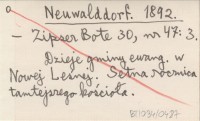 a
Neuwalddorf. 1892.
— Zipser Bote 30, nr 47: 3.
Dzieje gminy ewang. w
Nowej Leśnej. Setna rocznica
tamtejszego kościoła.